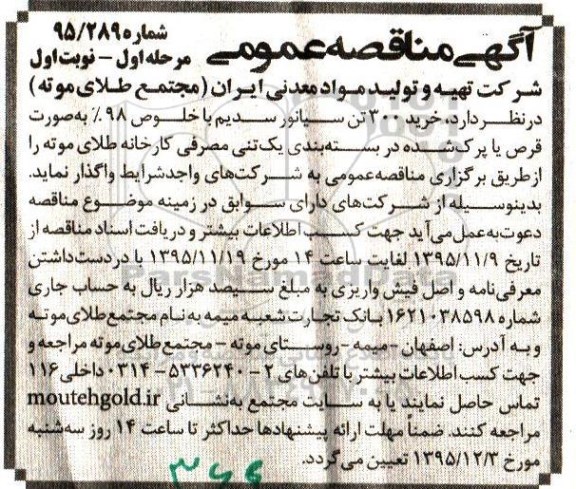 آگهی مناقصه عمومی
شماره ۹۵/۲۸۹
مرحله اول - نوبت اول
شرکت تهیه و تولید مواد معدنی ایران (مجتمع طلای موته)
در نظر دارد، خرید ۳۰۰ تن سیانور سدیم با خلوص ۹۸٪ به صورت
قرص یا پرک شده در بسته‌بندی یک تنی مصرفی کارخانه طلای موته را
از طریق برگزاری مناقصه عمومی به شرکت‌های واجد شرایط واگذار نماید.
بدینوسیله از شرکت‌های دارای سوابق در زمینه موضوع مناقصه
دعوت به عمل می‌آید جهت کسب اطلاعات بیشتر و دریافت اسناد مناقصه از
تاریخ ۱۳۹۵/۱۱/۹ لغایت ساعت ۱۴ مورخ ۱۳۹۵/۱۱/۱۹ با در دست داشتن
معرفی‌نامه و اصل فیش واریزی به مبلغ سیصد هزار ریال به حساب جاری
شماره ۱۶۲۱۰۳۸۵۹۸ بانک تجارت شعبه میمه به نام مجتمع طلای موته
و به آدرس: اصفهان - میمه - روستای موته - مجتمع طلای موته مراجعه و
جهت کسب اطلاعات بیشتر با تلفن‌های ۲ - ۵۳۳۶۲۴۰ - ۰۳۱۴ داخلی ۱۱۶
تماس حاصل نمایند یا به سایت مجتمع به نشانی moutehgold.ir
مراجعه کنند. ضمناً مهلت ارائه پیشنهادها حداکثر تا ساعت ۱۴ روز سه‌شنبه
مورخ ۱۳۹۵/۱۲/۳ تعیین می‌گردد.
ParsNamadData